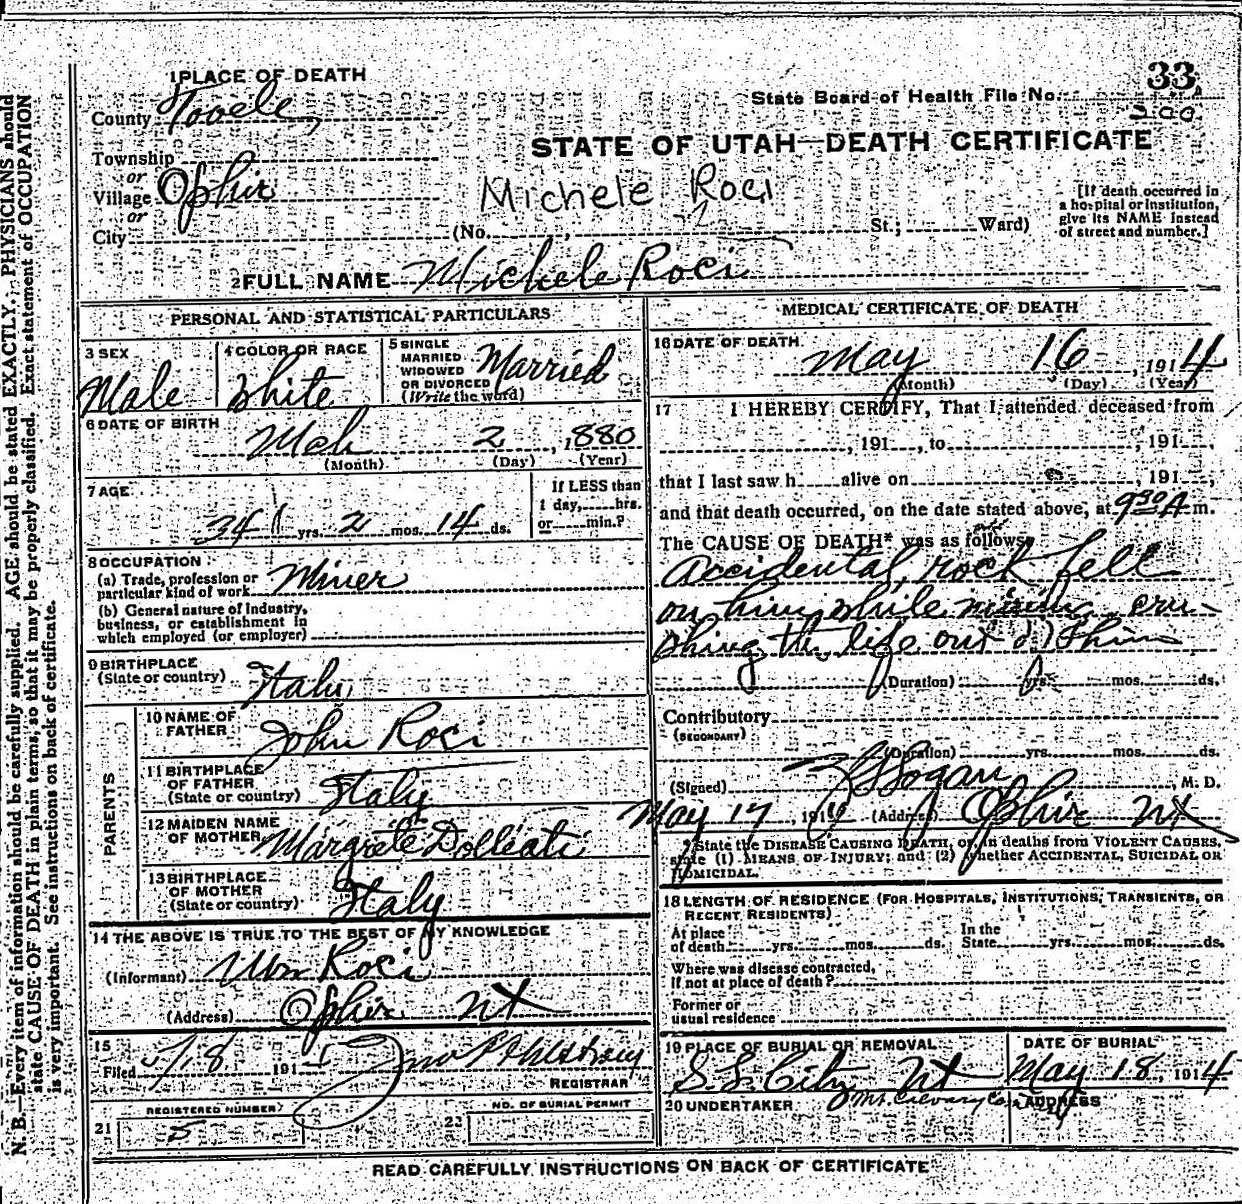 1 PLACE OF DEATH
County Tooele,
Township
or
Village Ophir
or
City (No. St.; Ward)
State Board of Health File No. 33
200
STATE OF UTAH—DEATH CERTIFICATE
Michele Roci
[If death occurred in
a hospital or institution,
give its NAME instead
of street and number.]
2 FULL NAME Michele Roci
PERSONAL AND STATISTICAL PARTICULARS
3 SEX
Male
4 COLOR OR RACE
White
5 SINGLE
MARRIED
WIDOWED
OR DIVORCED
(Write the word)
Married
6 DATE OF BIRTH
Mch 2, 1880
(Month) (Day) (Year)
7 AGE
34 yrs. 2 mos. 14 ds.
If LESS than
1 day, hrs.
or min.?
8 OCCUPATION
(a) Trade, profession or
particular kind of work Miner
(b) General nature of industry,
business, or establishment in
which employed (or employer)
9 BIRTHPLACE
(State or country) Italy
PARENTS
10 NAME OF
FATHER John Roci
11 BIRTHPLACE
OF FATHER
(State or country) Italy
12 MAIDEN NAME
OF MOTHER Margrete
13 BIRTHPLACE
OF MOTHER
(State or country) Italy
14 THE ABOVE IS TRUE TO THE BEST OF MY KNOWLEDGE
(Informant) Roci
(Address) Ophir Ut
15
Filed 191
REGISTRAR
REGISTERED NUMBER
21 5
NO. OF BURIAL PERMIT
22
MEDICAL CERTIFICATE OF DEATH
16 DATE OF DEATH
May 16, 1914
(Month) (Day) (Year)
17 I HEREBY CERTIFY, That I attended deceased from
, 191 , to , 191 ,
that I last saw h alive on , 191 ,
and that death occurred, on the date stated above, at 9 30 A m.
The CAUSE OF DEATH* was as follows:
Accidental, rock fell
on him while mining cru-
shing the life out of him
(Duration) yrs. mos. ds.
Contributory
(SECONDARY)
(Duration) yrs. mos. ds.
(Signed) , M. D.
May 17, 1914 (Address) Ophir Ut
*State the DISEASE CAUSING DEATH, or, in deaths from VIOLENT CAUSES,
state (1) MEANS OF INJURY; and (2) whether ACCIDENTAL, SUICIDAL OR
HOMICIDAL.
18 LENGTH OF RESIDENCE (FOR HOSPITALS, INSTITUTIONS, TRANSIENTS, OR
RECENT RESIDENTS)
At place
of death yrs. mos. ds.
In the
State yrs. mos. ds.
Where was disease contracted,
If not at place of death?
Former or
usual residence
19 PLACE OF BURIAL OR REMOVAL
S. L. City Ut
Mt. Calvary
DATE OF BURIAL
May 18, 1914
20 UNDERTAKER
ADDRESS
READ CAREFULLY INSTRUCTIONS ON BACK OF CERTIFICATE
N. B.—Every item of information should be carefully supplied. AGE should be stated EXACTLY. PHYSICIANS should
state CAUSE OF DEATH in plain terms, so that it may be properly classified. Exact statement of OCCUPATION
is very important. See instructions on back of certificate.